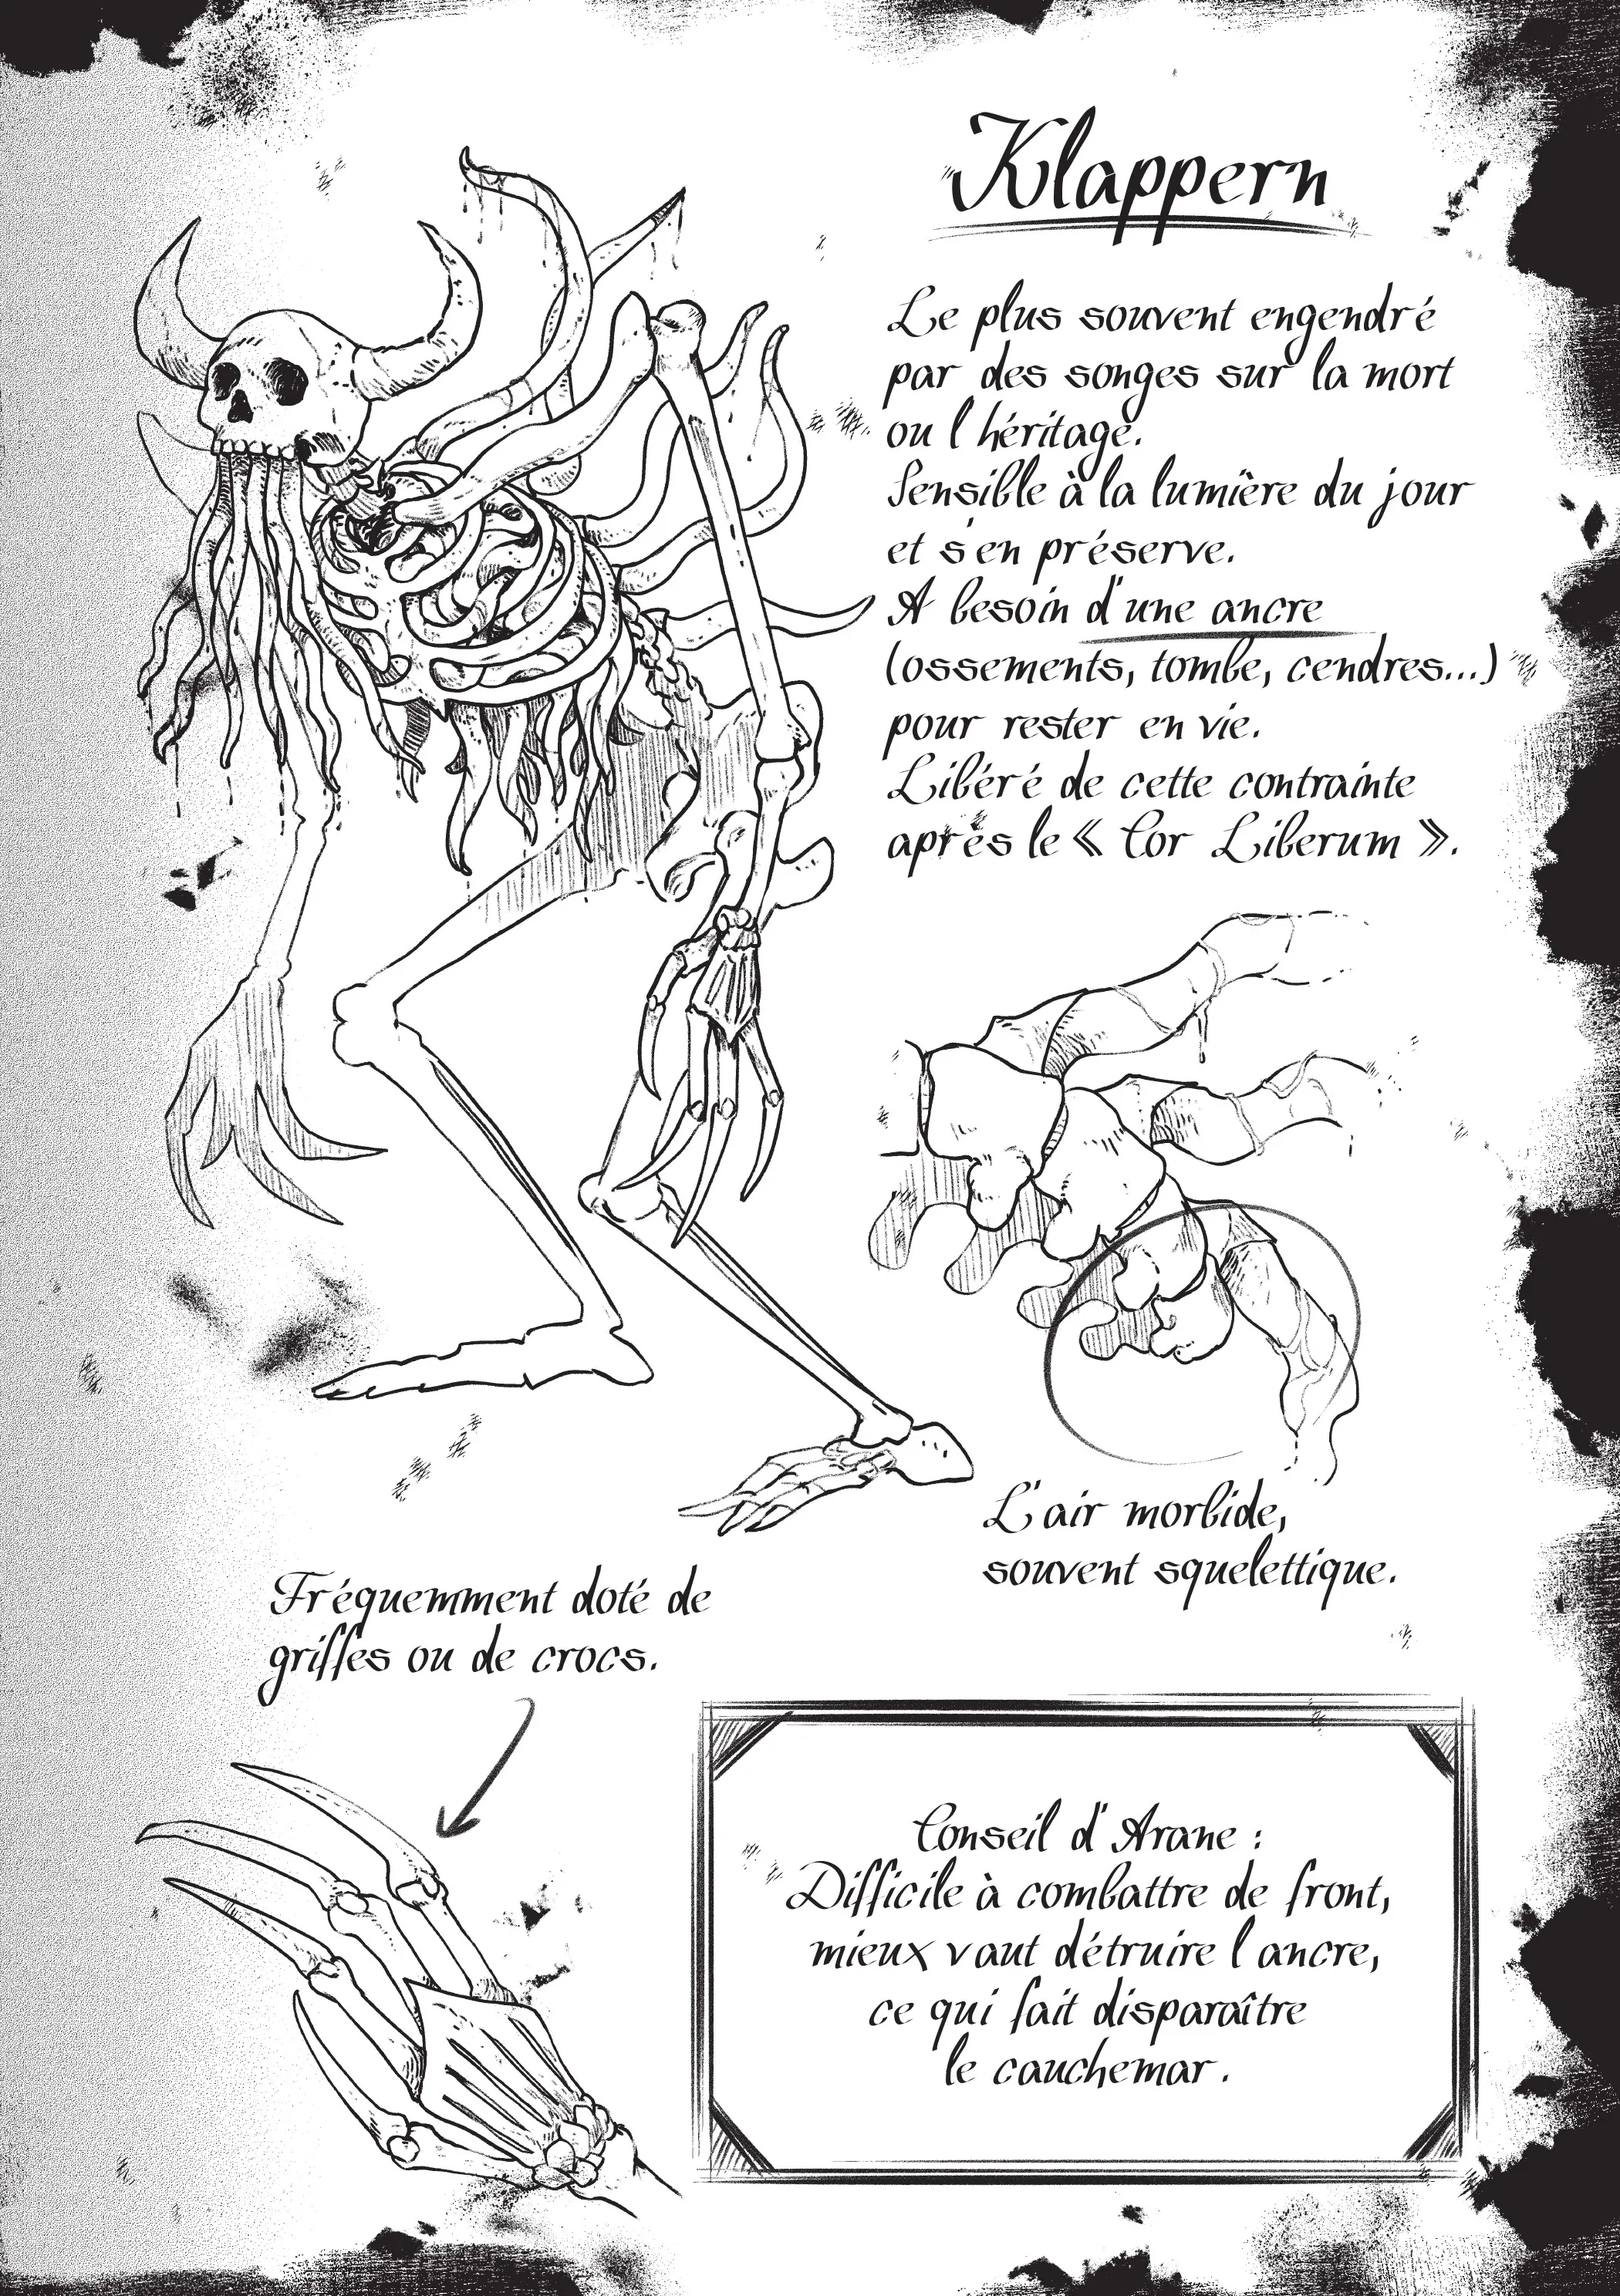 Klappern
Le plus souvent engendré
par des songes sur la mort
ou l'héritage.
Sensible à la lumière du jour
et s'en préserve.
A besoin d'une ancre
(ossements, tombe, cendres...)
pour rester en vie.
Libéré de cette contrainte
après le « Cor Liberum ».
L'air morbide,
souvent squelettique.
Fréquemment doté de
griffes ou de crocs.
Conseil d'Arane :
Difficile à combattre de front,
mieux vaut détruire l'ancre,
ce qui fait disparaître
le cauchemar.